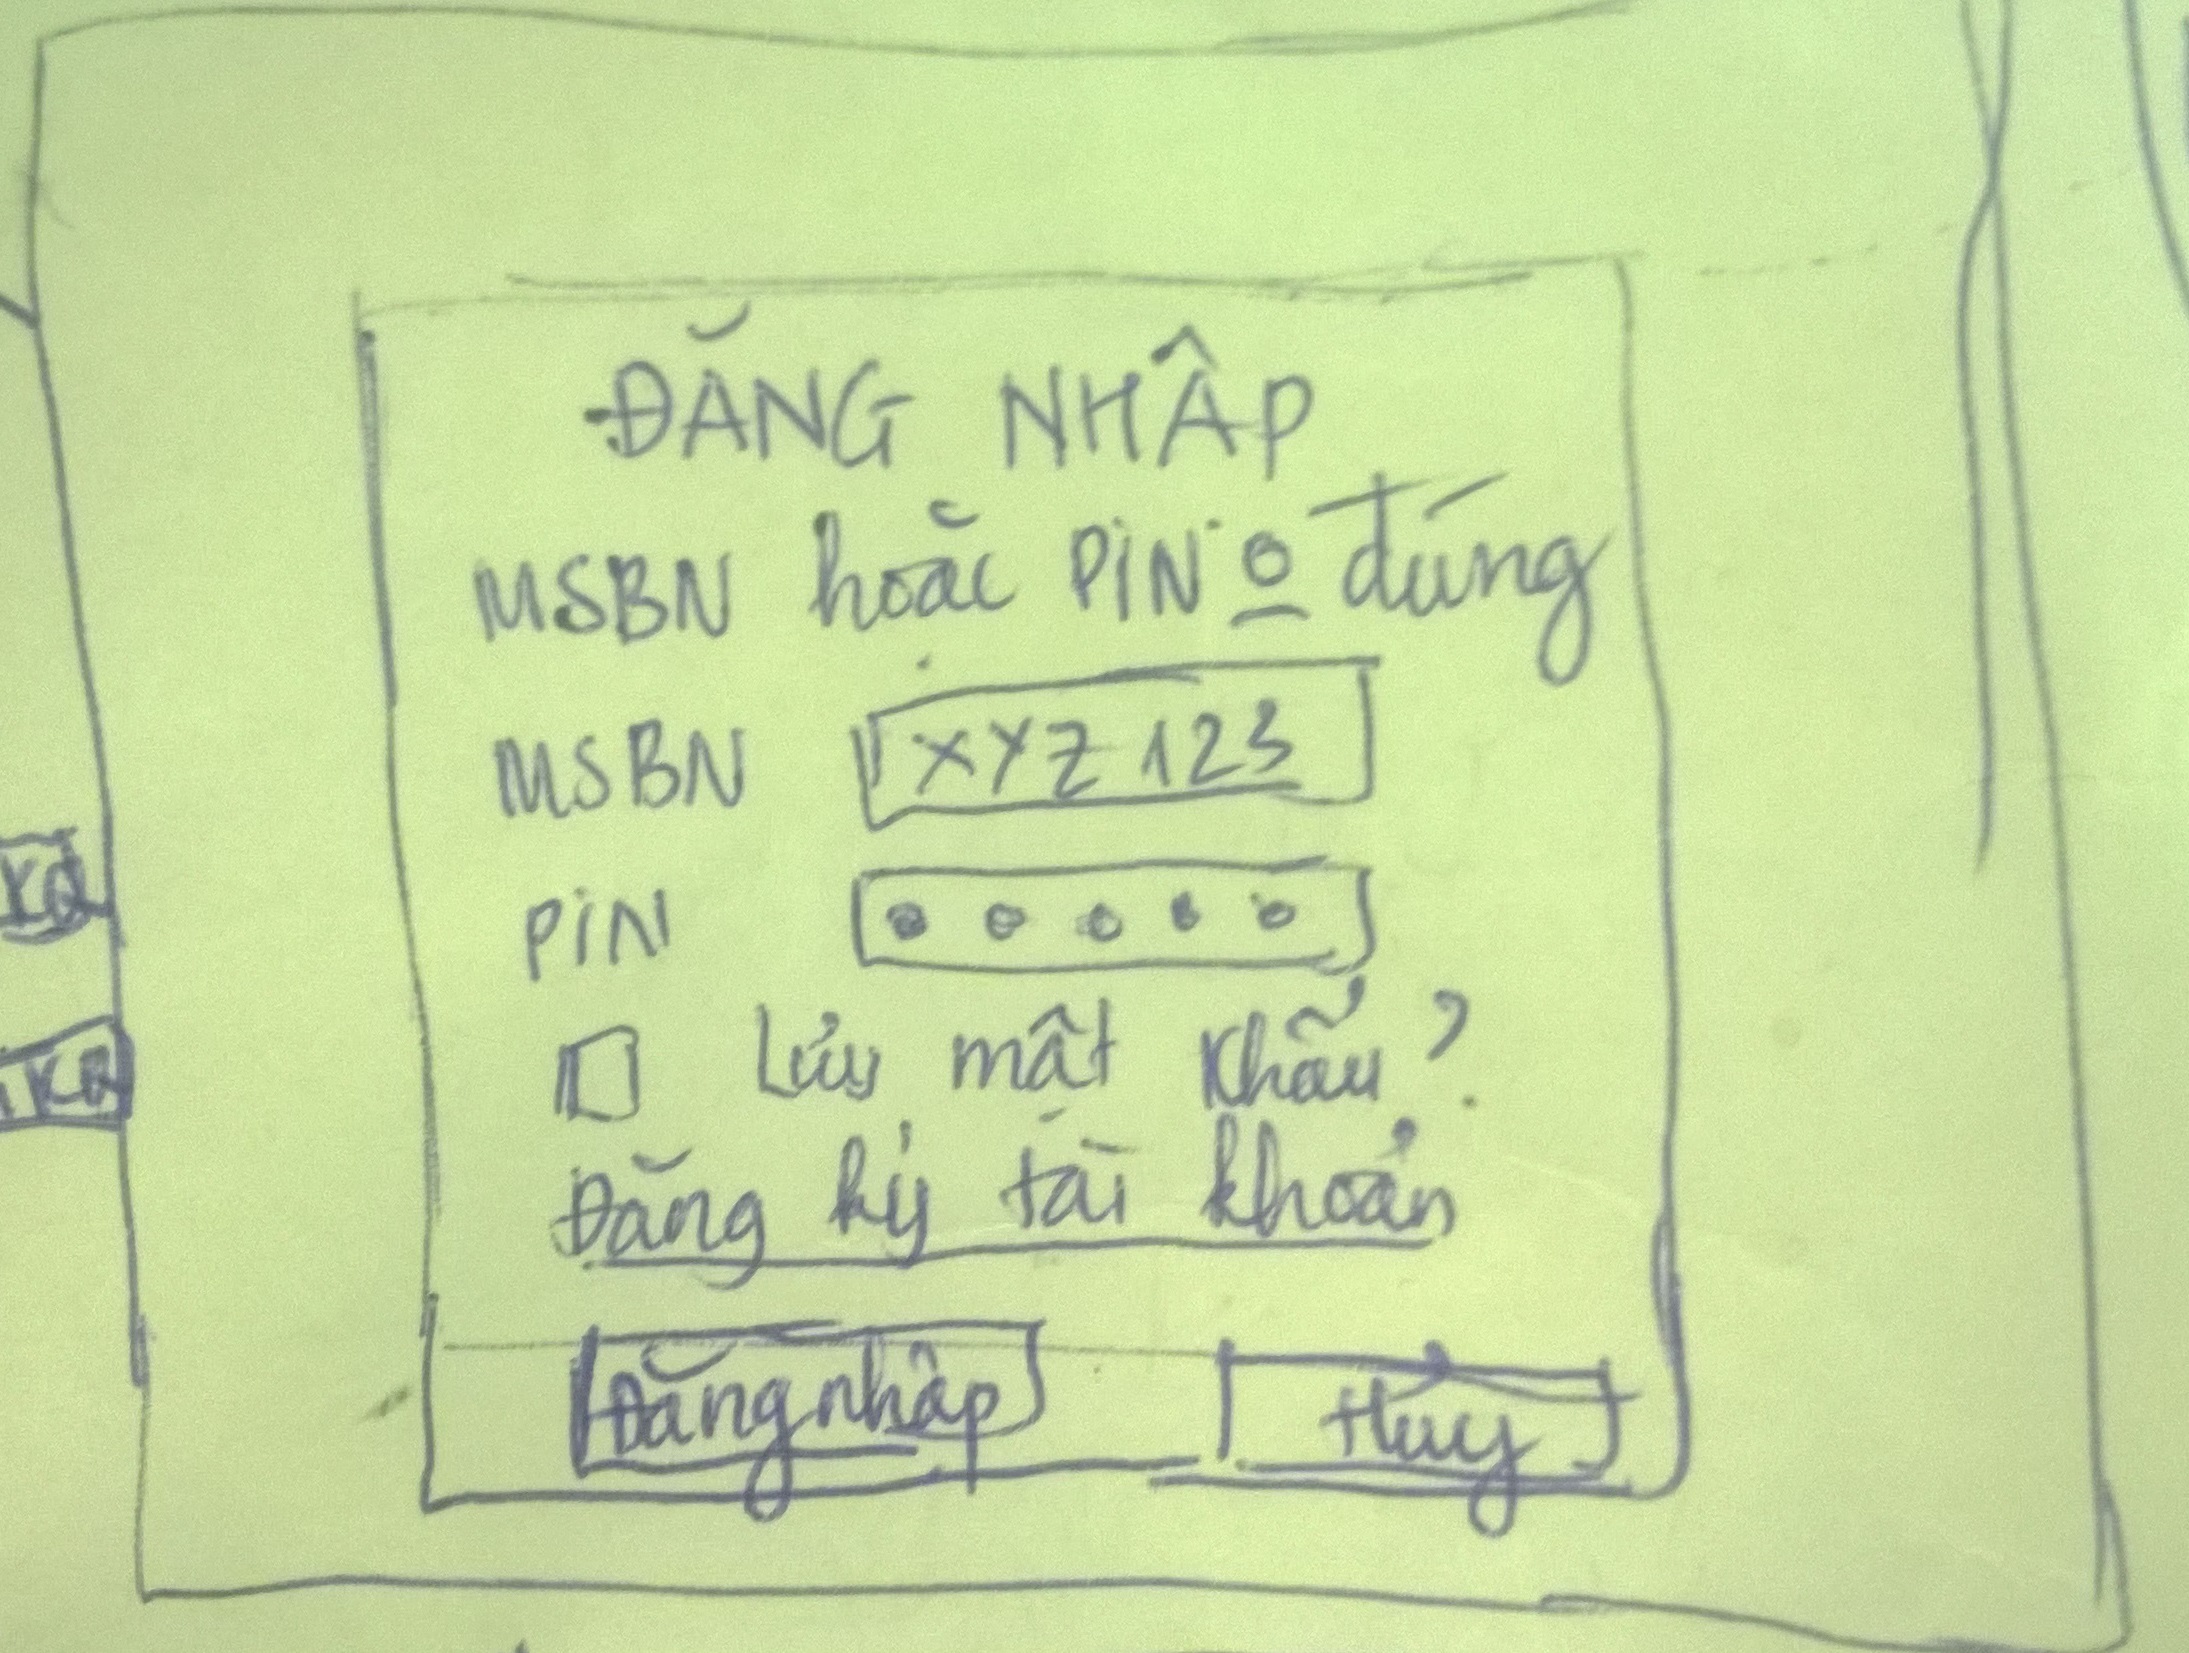 ĐĂNG NHẬP
MSBN hoặc PIN o đúng
MSBN XYZ 123
PIN
Lưu mật khẩu?
Đăng ký tài khoản
Đăng nhập Hủy
KQ